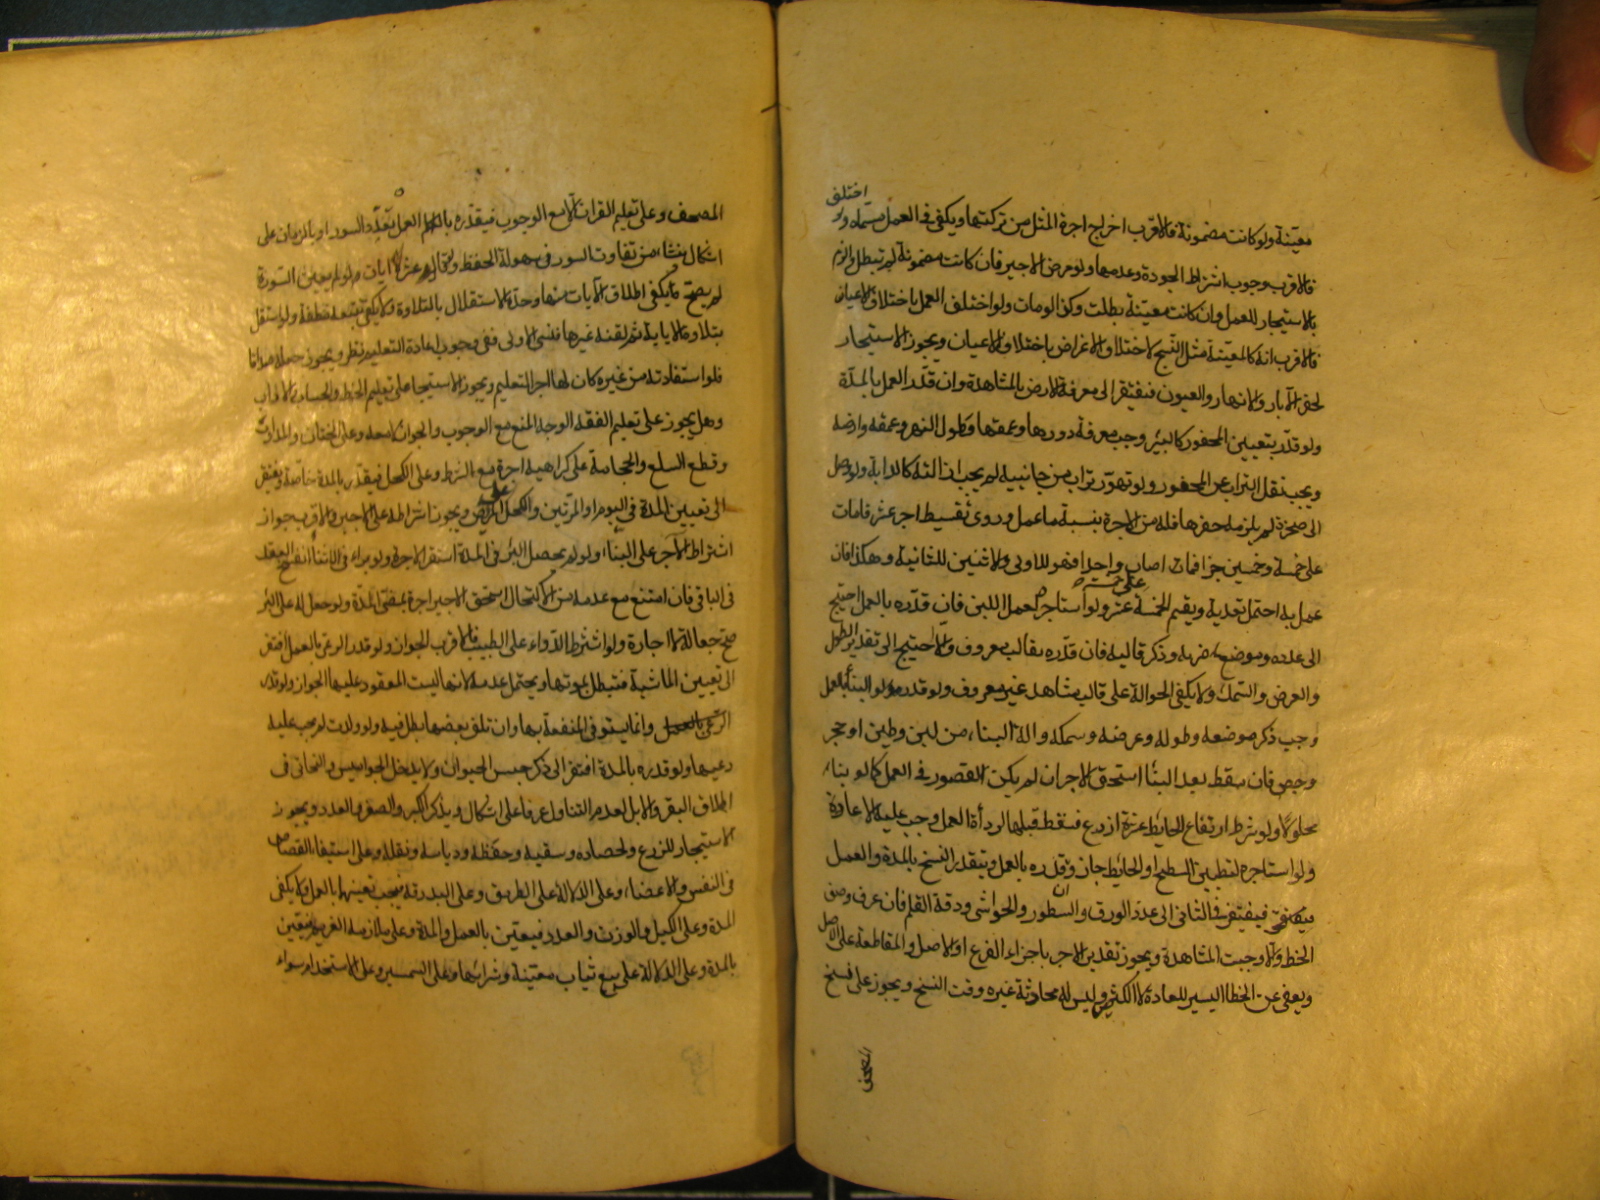 اختلف
معيّنة ولو كانت مضمونة فالاقرب اخراج اجرة المثل من تركتها ويكفى فى العمل مسمّاه ولو
فالاقرب وجوب اشتراط الجودة وعدمها ولو مرض الاجير فان كانت مضمونة لم تبطل والزم
بالاستيجار للعمل وان كانت معيّنة بطلت وكذا لو مات ولو اختلف العمل باختلاف الاعيان
فالاقرب انه كالمعيّنة مثل النسج لاختلاف الاغراض باختلاف الاعيان ويجوز الاستيجار
لحفر الآبار والانهار والعيون فيفتقر الى معرفة الارض بالمشاهدة وان قدّر العمل بالمدّة
ولو قدّر بتعيين المحفور كالبئر وجب معرفة دورها وعمقها وطول النهر وعمقه وارضه
ويجب نقل التراب عن المحفور ولو تهوّر تراب من جانبيه لم يجب ازالته كالدابة ولو وصل
الى صخرة لم يلزمه حفرها فله من الاجرة بنسبة ما عمل وروى تقسيط اجر عشر قامات
على خمسة وخمسين جزا فما اصاب واحدا فهو للاولى والاثنين للثانية وهكذا فان
على خمسة
عمل به احتمل تعدية ويقيم الخمسة عشر ولو استاجر لعمل اللبن فان قدّره بالعمل احتيج
الى عدده وموضع ضربه وذكر قالبه فان قدّره بقالب معروف والا احتيج الى تقدير الطول
والعرض والسمك ولا يكفى الحوالة على قالب مشاهد غير معروف ولو قدر البناء بالعمل
وجب ذكر موضعه وطوله وعرضه وسمكه والة البناء من لبن وطين او حجر
وجص فان سقط بعد البناء استحق الاجر ان لم يكن القصور فى العمل كما لو بناه
محلولا ولو شرط ارتفاع الحايط عشرة اذرع فسقط قبلها لردأة العمل وجب عليه الاعادة
ولو استاجره لتطيين السطح او الحايط جاز وقدره بالعمل ويتقدر النسخ بالمدة والعمل
فيفتقر فى الثانى الى عدد الورق والسطور والحواشى ودقة القلم فان عرف وصف
الخط والا وجبت المشاهدة ويجوز تقدير الاجر باجزاء الفرع او الاصل والمقاطعة على الاصل
ويعفى عن الخطا اليسير للعادة لا الكثير وليس له محادثة غيره وقت النسخ ويجوز على نسخ
المصحف
المصحف وعلى تعليم القران الا مع الوجوب فيقدّره بالعمل تعدد السور او بالزمان على
اشكال ينشاء من تفاوت السور فى سهولة الحفظ ولو قال عشر آيات ولم يعين السورة
لم يصح ويكفى اطلاق الآيات منها وحدّه الاستقلال بالتلاوة ولا يكفى تتبعه نطقه ولو استقل
بتلاوة الاية ثم لقنه غيرها فنسى الاولى ففى وجوب اعادة التعليم نظر ويجوز جعله صداقا
فلو استفادته من غيره كان لها اجر التعليم ويجوز الاستيجار على تعليم الخط والحساب والاداب
وهل يجوز على تعليم الفقه الوجه المنع مع الوجوب والجواز لا معه وعلى الختان والمداواة
وقطع السلع والحجامة على كراهية اجرة مع الشرط وعلى الكحل فيقدّر بالمدة خاصّة ويفتقر
الى تعيين المدة فى اليوم او المرتين والكحل على المريض ويجوز اشتراطه على الاجير والاقرب جواز
اشتراط الآجر على البناء ولو لم يحصل البرء فى المدة استقر الاجرة ولو براء فى الاثناء انفسخ العقد
فى الباقى فان امتنع مع عدمه من الاكتحال استحق الاجير اجرة بمضى المدة ولو جعل له على البرء
صح جعالة لا اجارة ولو اشترط الدواء على الطبيب فالاقرب الجواز ولو قدر الرعى بالعمل افتقر
الى تعيين الماشية فتبطل بموتها ويحتمل عدمه لانها ليست المعقود عليها الجواز ولو قدر
الرعى وانما يستوفى المنفعة بها وان تلف بعضها بطل فيه ولو ولدت لم يجب عليه
رعيها ولو قدره بالمدة افتقر الى ذكر جنس الحيوان ولا يدخل الجواميس والبخاتى فى
اطلاق البقر والابل لعدم التناول عرفا على اشكال ويذكر الكبر والصغر والعدد ويجوز
الاستيجار للزرع ولحصاده وسقيه وحفظه ودياسه ونقله وعلى استيفاء القصاص
فى النفس والاعضاء وعلى الدلالة على الطريق وعلى البدرقة فيجب تعيينها بالعمل ولا يكفى
المدة وعلى الكيل والوزن والعدد فيعيّن بالعمل والمدة وعلى ملازمة الغريم فيتعين
بالمدة وعلى الدلالة على بيع ثياب معيّنة وشرائها وعلى السمسرة وعلى الاستخدام سواء